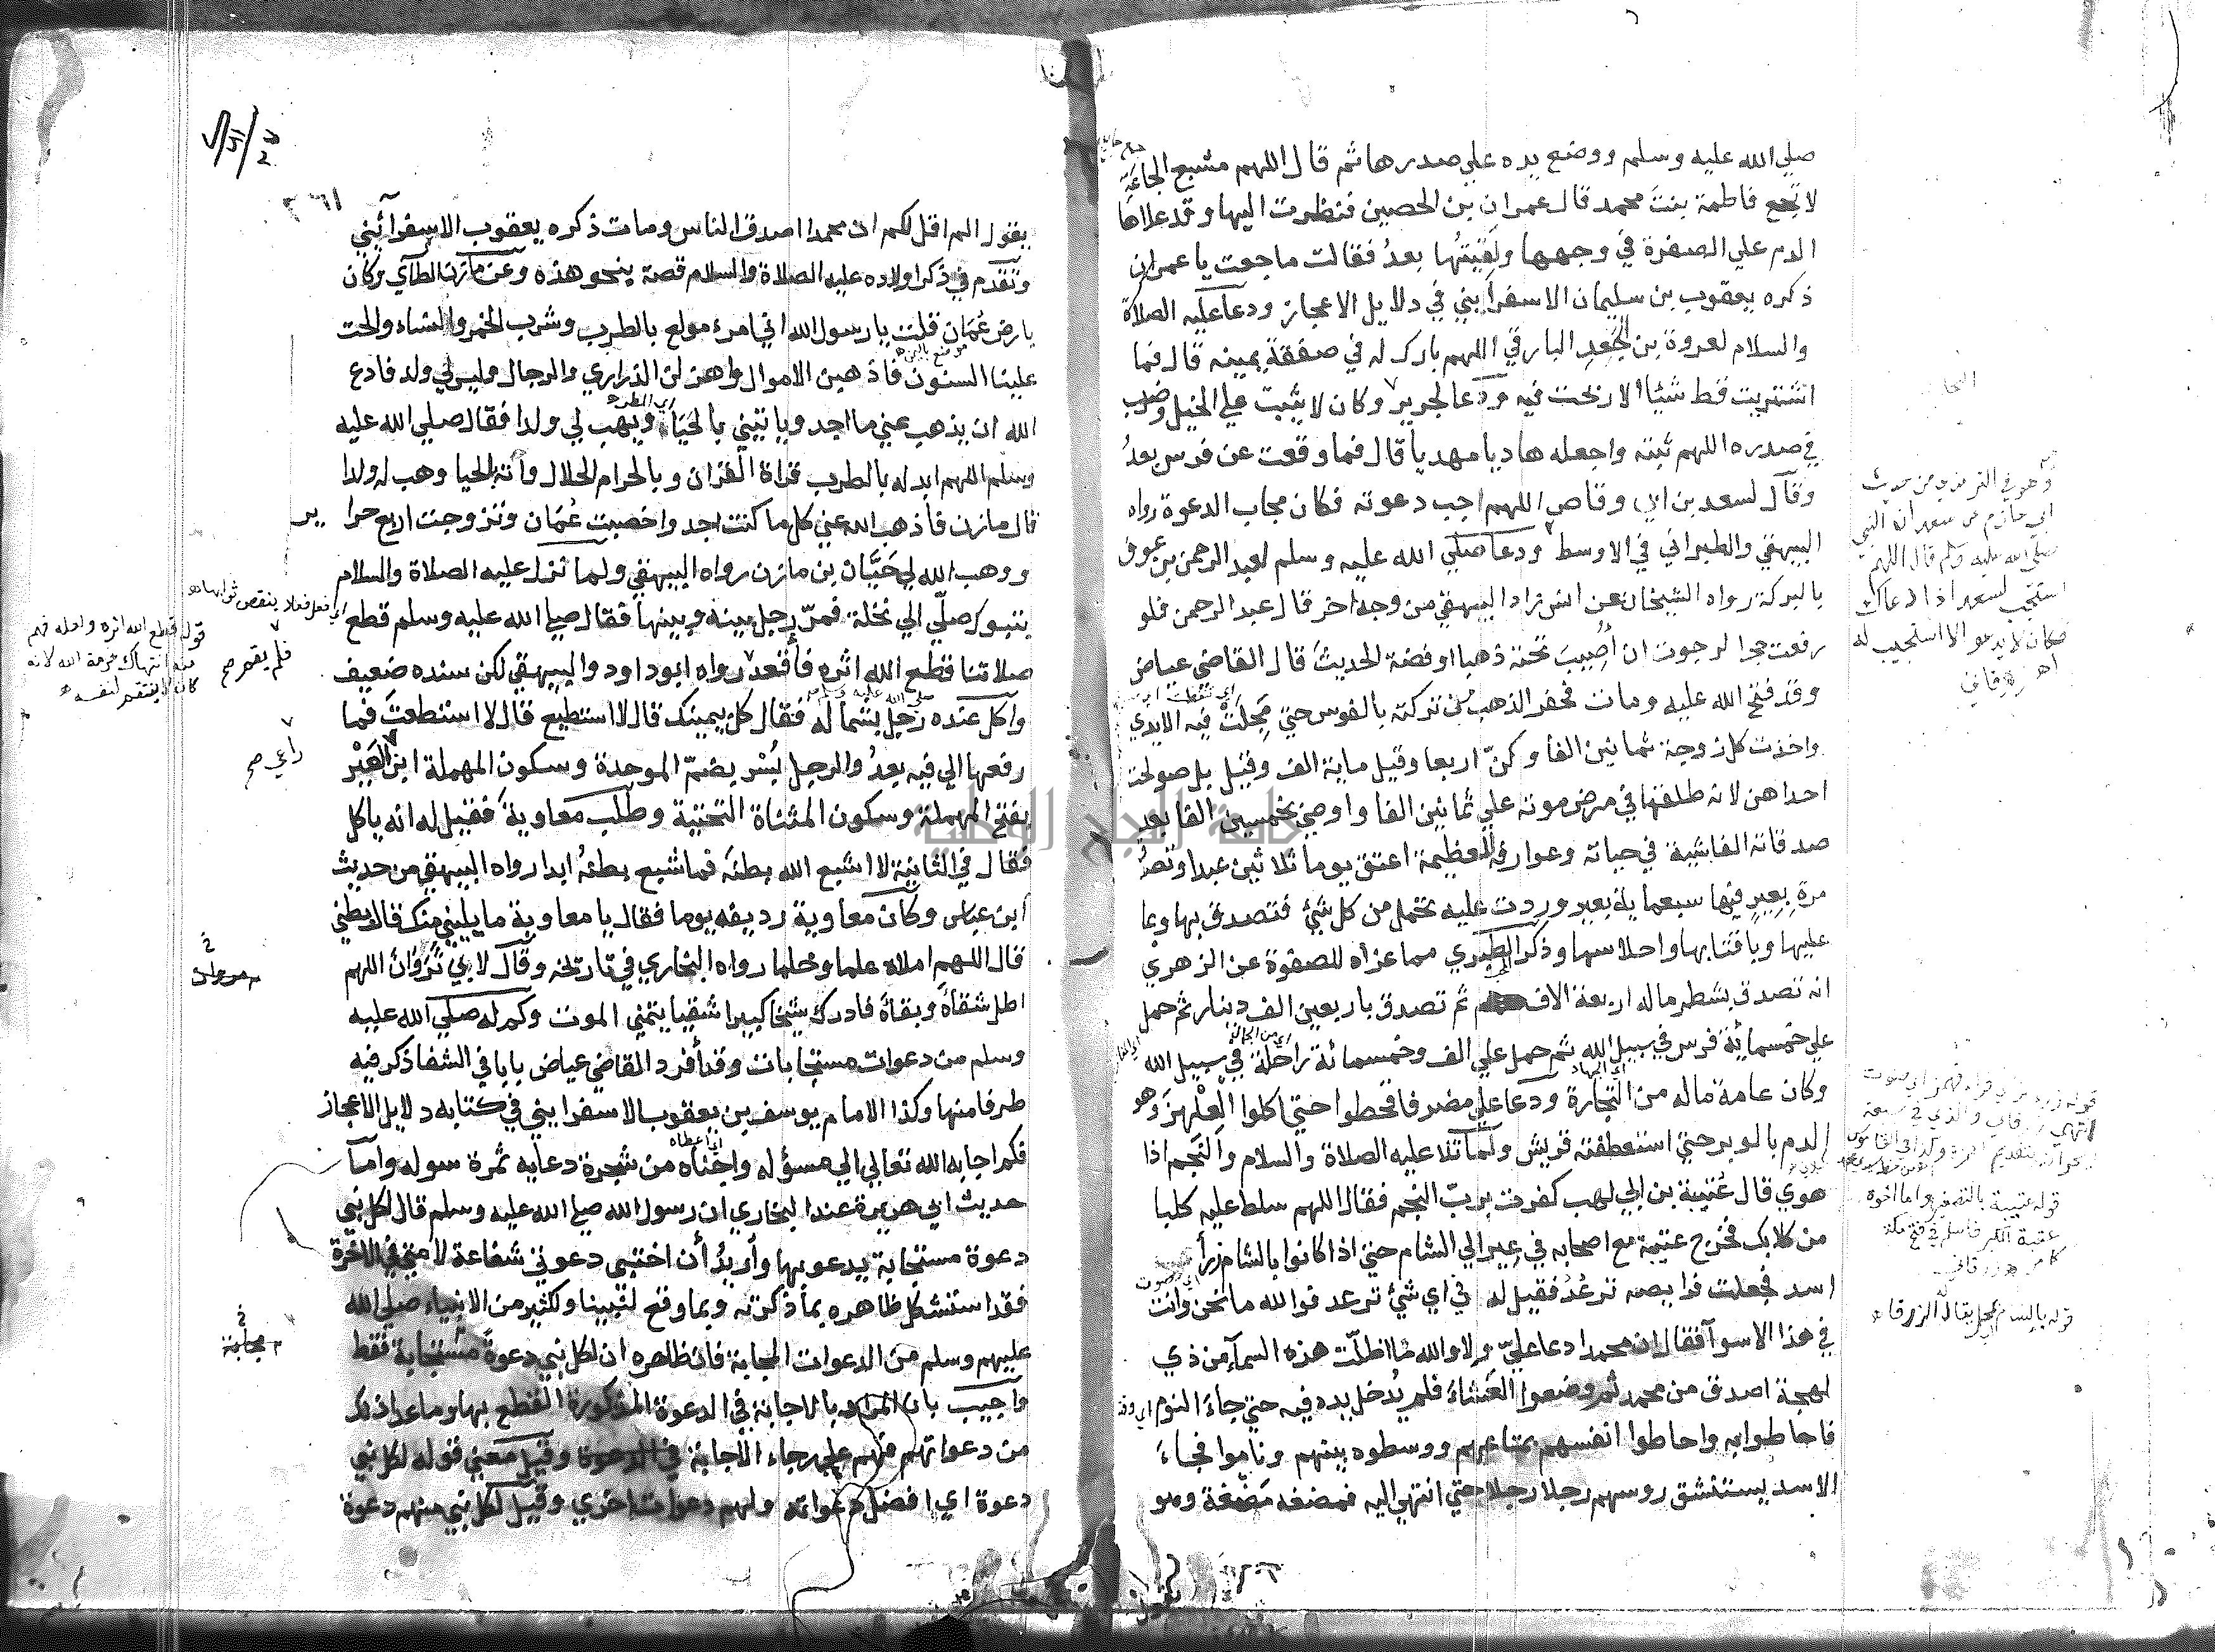 صلي الله عليه وسلم ووضع يده علي صدرها ثم قال اللهم مشبع الجاعَة
لا تُجِع فاطمة بنتَ محمد قال عمران بن الحصين فنظرت اليها وقد علاها
الدم علي الصفرة في وجهها ولقيتُها بعدُ فقالت ماجعت يا عمران
ذكره يعقوب بن سليمان الاسفرآيني في دلايل الاعجاز ودعا عليه الصلاة
والسلام لعروة بن الجَعدِ البارقي اللهم بارك له في صفقة يمينه قال فما
اشتريت قط شيئا الا ربحت فيه ودعا لجرير وكان لا يثبت علي الخيل وضرب
في صدره اللهم ثبته واجعله هاديا مهديا قال فما وقعت عن فرس بعدُ
وقال لسعد بن ابي وقاص اللهم اجب دعوته فكان مجاب الدعوة رواه
البيهقي والطبراني في الاوسط ودعا صلي الله عليه وسلم لعبد الرحمن بن عوف
بالبركة رواه الشيخان عن انس زاد البيهقي من وجه اخر قال عبد الرحمن فلو
رفعت حجرا لرجوت ان اُصيبَ تحته ذهبا او فضة الحديث قال القاضي عياض
وقد فتح الله عليه ومات فحفر الذهب من تركته بالفوس حتي مَجِلَتْ فيه الايدي
واخذت كل زوجة ثمانين الفا وكنّ اربعا وقيل ماية الف وقيل بل صولحت
احداهن لانه طلقها في مرض موته علي ثمانين الفا واوصي بخمسين الفا بعد
صدقاته الفاشية في حياته وعوارفه العظيمة اعتق يوما ثلاثين عبدا وتصدق
مرة بِعيرٍ فيها سبعماية بعير وردت عليه تحمل من كل شئ فتصدق بها وبما
عليها وباقتابها واحلاسها وذكر الطبري مما عزاه للصفوة عن الزهري
انه تصدق بشطر ماله اربعة الاف ثم تصدق باربعين الف دينار ثم حمل
علي خمسمائة فرس في سبيل الله ثم حمل علي الف وخمسمائة راحلة في سبيل الله
وكان عامة ماله من التجارة ودعا علي مضر فاقحطوا حتي اكلوا العِلْهِزَ وهو
الدم بالوبر حتي استعطفته قريش ولما تلا عليه الصلاة والسلام والنجم اذا
هوي قال عُتيبة بن ابي لهب كفرت بربّ النجم فقال اللهم سلط عليه كلبا
من كلابك فخرج عتيبة مع اصحابه في عِير الي الشام حتي اذا كانوا بالشام زأر
اسد فجعلت فرايصه ترعُدُ فقيل له في اي شئ ترعد فوالله ما نحن وانت
في هذا الا سوآ فقال ان محمدا دعا عليّ ولا والله ما اظلّت هذه السمآء من ذي
لهجة اصدق من محمد ثم وضعوا العَشَاءَ فلم يُدخل يده فيه حتي جاءَ النوم
فاحاطوا به واحاطوا انفسهم بمتاعهم ووسطوه بينهم وناموا فجاءَ
الاسد يستنشق روسهم رجلا رجلا حتي انتهي اليه فمضغه مَضْغة وهو
يقول
وهو في الترمذي من حديث
ابي حازم عن سعد ان النبي
صلي الله عليه وسلم قال اللهم
استجب لسعد اذا دعاك
فكان لا يدعو الا استجيب له
اهـ زرقاني
قوله عتيبة بالتصغير واما اخوه
عقبة المكبر فاسلم في فتح مكة
٣٦١
يقول الم اقل لكم ان محمدا اصدق الناس ومات ذكره يعقوب الاسفرآئيني
وتقدم في ذكر اولاده عليه الصلاة والسلام قصة بنحو هذه وعن مازن الطآي وكان
بارض عُمَان قلت يا رسول الله اني امرء مولع بالطرب وشرب الخمر والنساء والحت
علينا السنون فاذهبن الاموال واهزلن الذراري والرجال وليس لي ولد فادع
الله ان يذهب عني ما اجد وياتيني بالحَيَا ويهب لي ولدا فقال صلي الله عليه
وسلم اللهم ابدله بالطرب قراة القران وبالحرام الحلال وآته بالحيا وهب له ولدا
قال مازن فاذهب الله عني كل ما كنت اجد واخصبت عُمَان وتزوجت اربع حراير
ووهب الله لي حَيَّان بن مازن رواه البيهقي ولما نزل عليه الصلاة والسلام
بتبوك صلّي الي نخلة فمرّ رجل بينه وبينها فقال صلي الله عليه وسلم قطع
صلاتنا قطع الله اثره فأُقعد رواه ابو داود والبيهقي لكن سنده ضعيف
وآكل عنده رجل بشماله فقال كل بيمينك قال لا استطيع قال لا استطعتَ فما
رفعها الي فيه بعدُ والرجل بُسْر بضمّ الموحدة وسكون المهملة ابن العَيْر
بفتح المهملة وسكون المثناة التحتية وطلب معاوية فقيل له انه ياكل
فقال في الثانية لا اشبع الله بطنَه فما شبع بطنُه ابدا رواه البيهقي من حديث
ابن عباس وكان معاوية رديفه يوما فقال يا معاوية ما يليني منك قال بطني
قال اللهم املاه علما وحلما رواه البخاري في تاريخه وقال لابي ثَرْوَان اللهم
اطل شقاءَه وبقاءَه فادرك شيخا كبيرا شقيا يتمني الموت وكم له صلي الله عليه
وسلم من دعوات مستجابات وقد أفرد القاضي عياض بابا في الشفا ذكر فيه
طرفا منها وكذا الامام يوسف بن يعقوب الاسفرايني في كتابه دلايل الاعجاز
فكم اجابه الله تعالي الي مسؤله واجناه من شجرة دعايه ثمرة سوله وامّا
حديث ابي هريرة عند البخاري ان رسول الله صلي الله عليه وسلم قال لكل نبي
دعوة مستجابة يدعو بها وأريدُ أن اختبي دعوتي شفاعة لامتي في الاخرة
فقد استشكل ظاهره بما ذكرته وبما وقع لنبينا ولكثير من الانبياء صلي الله
عليهم وسلم من الدعوات المجابة فان ظاهره ان لكل نبي دعوةً مستجابة فقط
واجيب بان المراد بالاجابة في الدعوة المذكورة القطع بها وما عدا ذلك
من دعواتهم فهم علي رجاء الاجابة في الدعوة وقيل معني قوله لكل نبي
دعوة اي افضل دعواته ولهم دعوات اخري وقيل لكل نبي منهم دعوة
اي فعل فعلا ينقص ثوابها
قوله قطع الله اثره
انتهاك حرمة الله لانه
كان لا ينتقم لنفسه
فلم يقم صح
راعي صح
مروان
مجابة
جامعة النجاح الوطنية